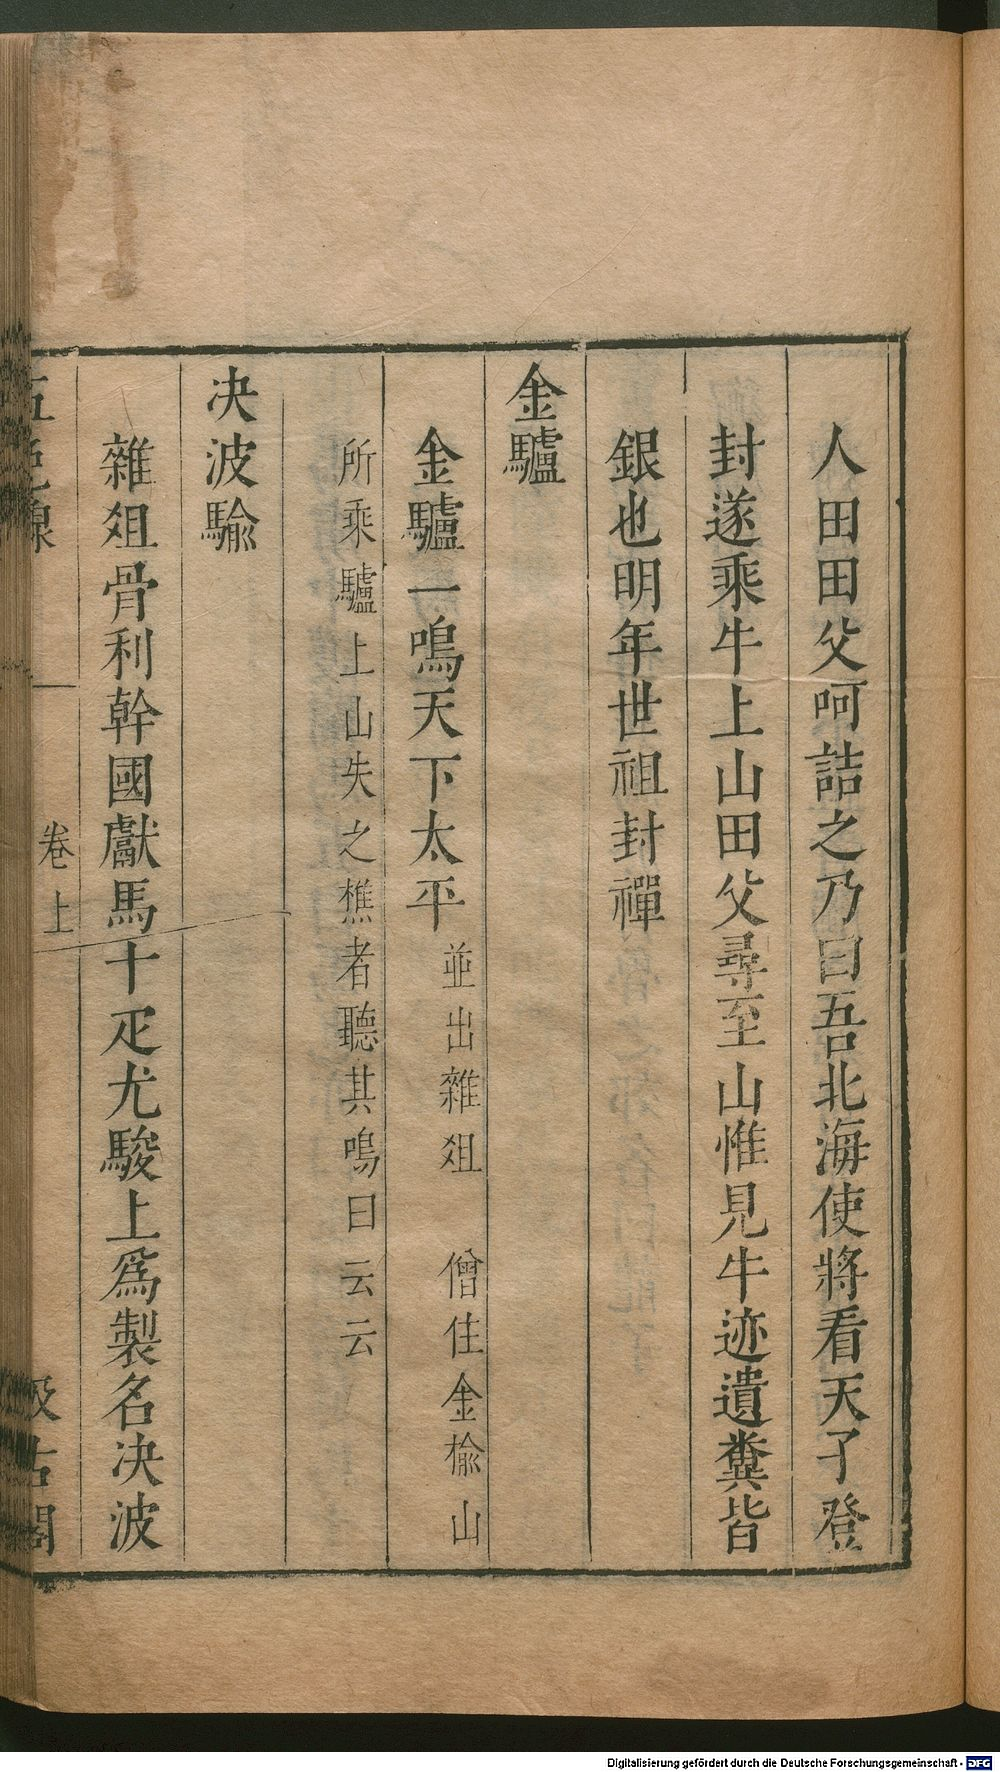 人田田父呵詰之乃曰吾北海使將看天子登
封遂乘牛上山田父尋至山惟見牛迹遺糞皆
銀也明年世祖封禪
金驢
金驢一鳴天下太平並出雜爼 僧住金榆山
所乘驢上山失之樵者聽其鳴曰云云
决波騟
雜爼骨利幹國獻馬十疋尤駿上爲製名决波
五色線 卷上 汲古閣
Digitalisierung gefördert durch die Deutsche Forschungsgemeinschaft - DFG